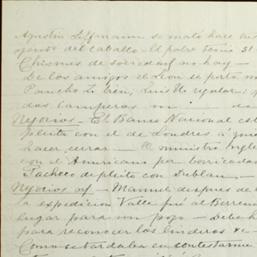 Agustin se mató hace
del caballo. El pobre tenia 31
Chismes de sociedad no hay —
De los amigos el Leon se portó
Pancho L. bien, Luis H. regular;
dos camperas
Negocios — El Banco Nacional está
pleito con el de Londres á quien
hacer cerrar — El ministro Ingles
con el Americano por borricadas
Pacheco de pleito con Dublan. —
Negocios — Manuel despues de
la expedicion Valle fué al
lugar para un pozo — Debe
para reconocer los linderos &c
Como se tardaba en contestarme